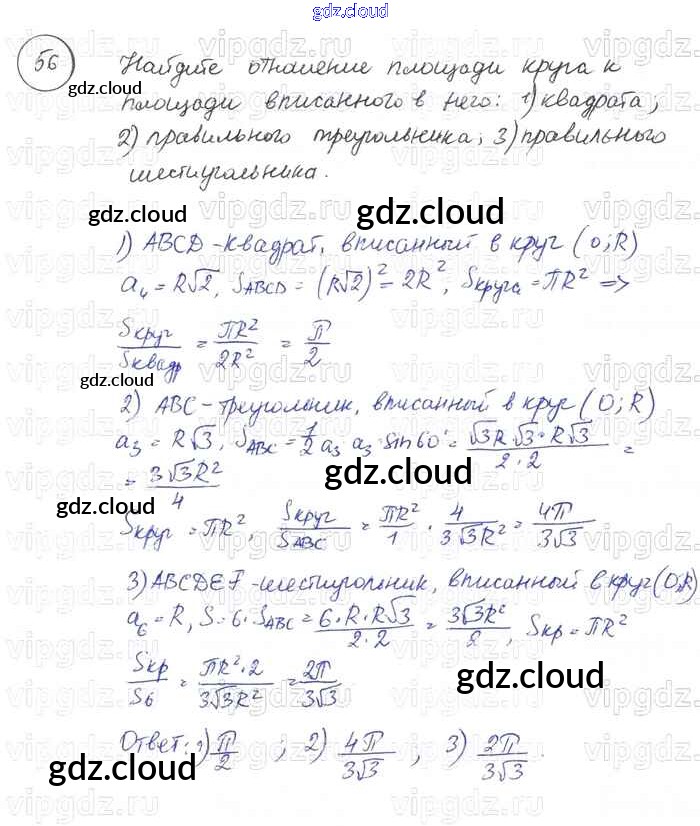 gdz.cloud
56 Найдите отношение площади круга к
gdz.cloud
площади вписанного в него: 1) квадрата;
2) правильного треугольника; 3) правильного
шестиугольника.
gdz.cloud gdz.cloud
1) ABCD - квадрат, вписанный в круг (O; R)
a₄ = R√2, S_ABCD = (R√2)² = 2R², Sкруга = πR² =>
Sкруг/Sквадр = πR²/2R² = π/2
gdz.cloud gdz.cloud
2) ABC - треугольник, вписанный в круг (O; R)
a₃ = R√3, S_ABC = 1/2 a₃ · a₃ · sin60° = √3R · √3 · R√3/2·2 =
= 3√3R²/4
gdz.cloud gdz.cloud
Sкруг = πR², Sкруг/S_ABC = πR²/1 · 4/3√3R² = 4π/3√3
3) ABCDEF - шестиугольник, вписанный в круг (O; R)
a₆ = R, S = 6 · S_ABC = 6·R·R√3/2·2 = 3√3R²/2, Sкр = πR²
Sкр/S₆ = πR²·2/3√3R² = 2π/3√3
gdz.cloud
Ответ: 1) π/2 ; 2) 4π/3√3 ; 3) 2π/3√3.
gdz.cloud